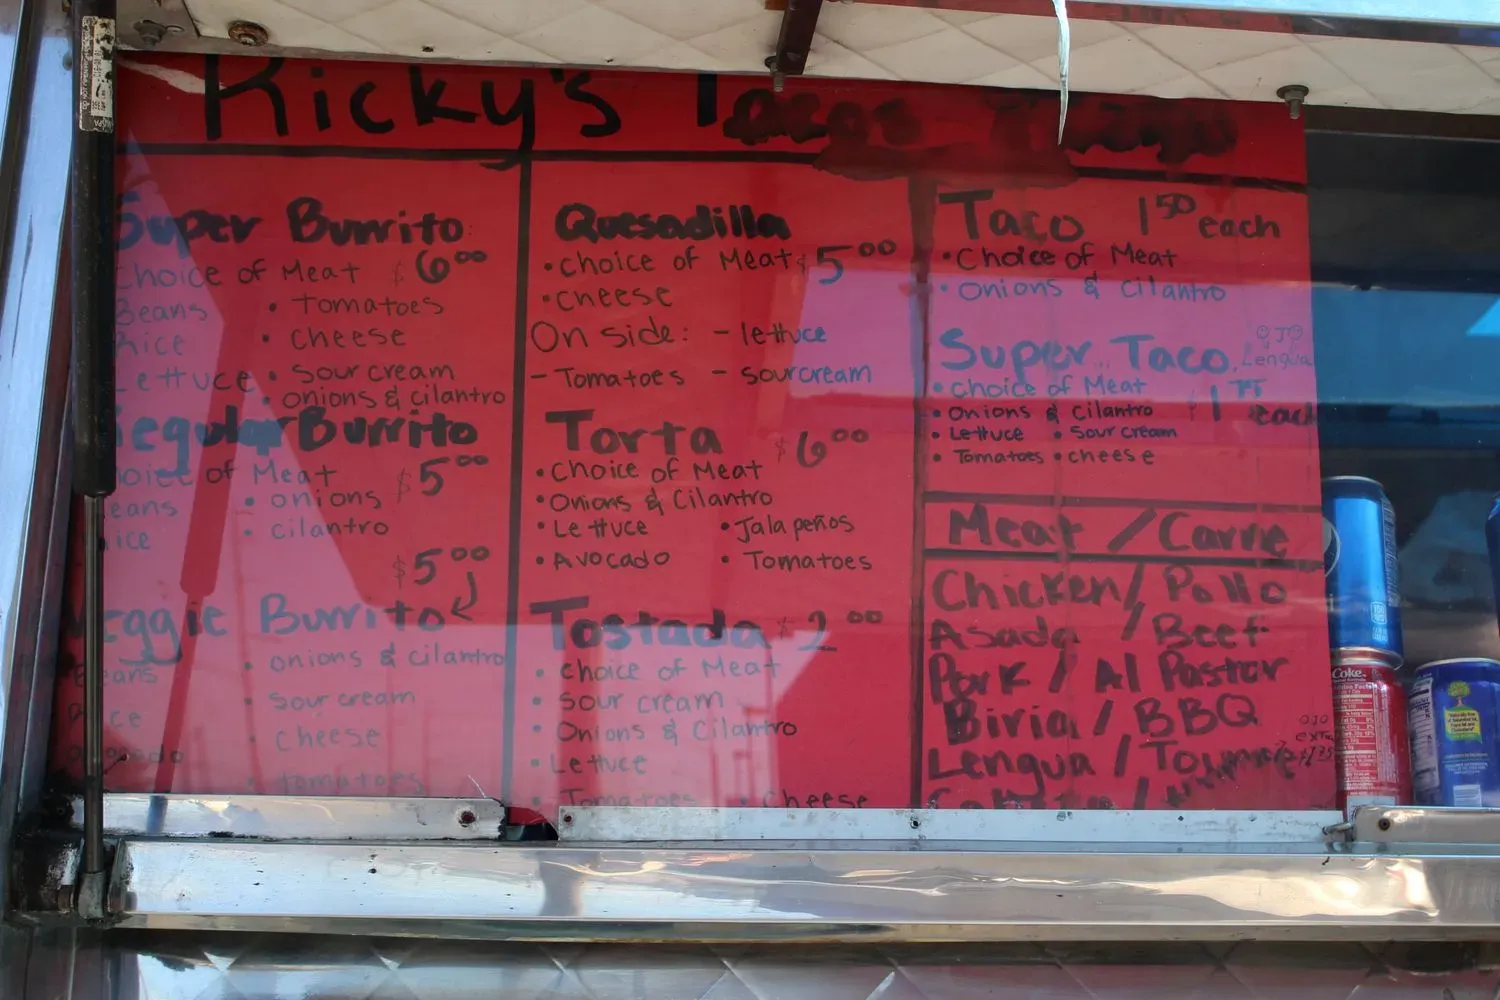 Ricky's Tacos
Super Burrito
Choice of Meat $6.00
Beans • Tomatoes
Rice • cheese
Lettuce • sour cream
• onions & cilantro
Regular Burrito
Choice of Meat $5.00
Beans • onions
Rice • cilantro
$5.00
Veggie Burrito
Beans • onions & cilantro
Rice • sour cream
• cheese
• tomatoes
Quesadilla
• Choice of Meat $5.00
• Cheese
On side: - lettuce
- Tomatoes - sour cream
Torta $6.00
• Choice of Meat
• Onions & Cilantro
• Lettuce • Jalapeños
• Avocado • Tomatoes
Tostada $2.00
• Choice of Meat
• Sour cream
• Onions & Cilantro
• Lettuce
• Tomatoes • Cheese
Taco 1.50 each
• Choice of Meat
• Onions & Cilantro
OJO
Lengua
Super Taco
• Choice of Meat
• Onions & Cilantro $1 each
• Lettuce • Sour cream
• Tomatoes • cheese
Meat / Carne
Chicken / Pollo
Asada / Beef
Pork / Al Pastor
Biria / BBQ
OJO
Lengua /
Coke